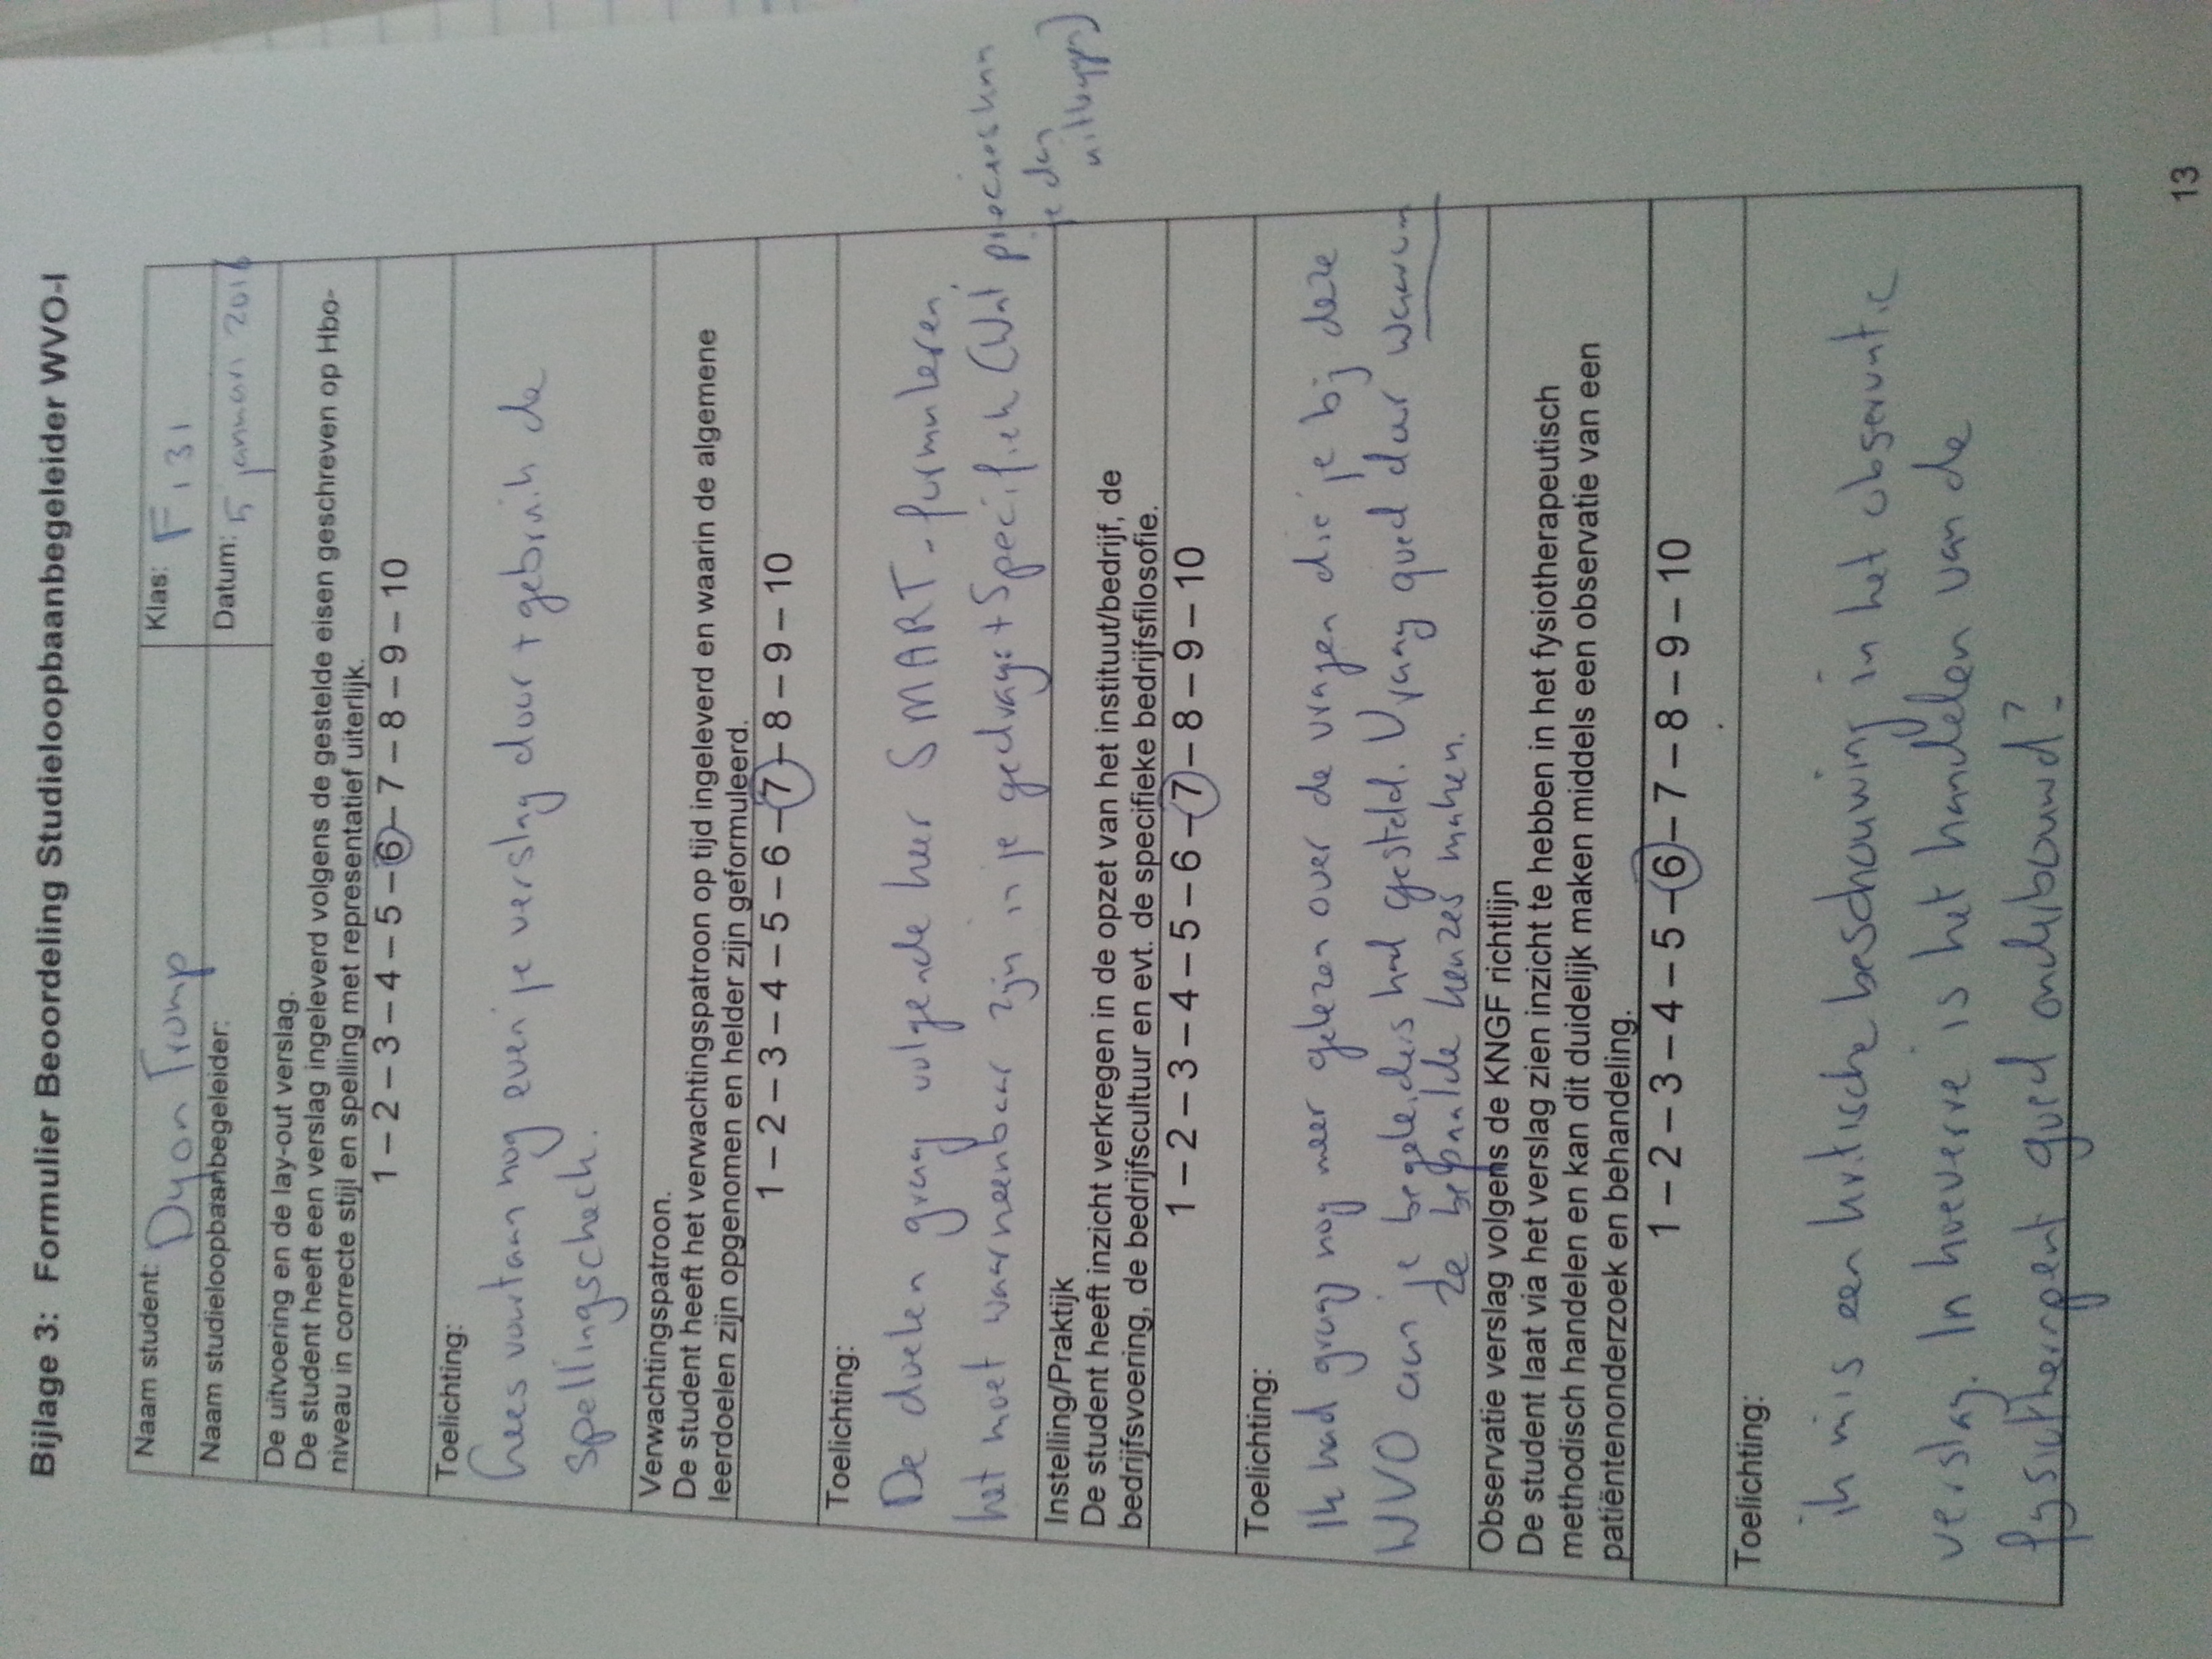 Bijlage 3: Formulier Beoordeling Studieloopbaanbegeleider WVO-I
Naam student: Dyon Tromp
Klas: F131
Naam studieloopbaanbegeleider:
Datum: 5 januari 2016
De uitvoering en de lay-out verslag.
De student heeft een verslag ingeleverd volgens de gestelde eisen geschreven op Hbo-
niveau in correcte stijl en spelling met representatief uiterlijk.
1 – 2 – 3 – 4 – 5 – 6 – 7 – 8 – 9 – 10
Toelichting:
Lees voortaan nog even je verslag door + gebruik de
spellingscheck.
Verwachtingspatroon.
De student heeft het verwachtingspatroon op tijd ingeleverd en waarin de algemene
leerdoelen zijn opgenomen en helder zijn geformuleerd.
1 – 2 – 3 – 4 – 5 – 6 – 7 – 8 – 9 – 10
Toelichting:
De doelen graag volgende keer SMART-formuleren,
het moet waarneenbaar zijn in je gedrag + Specifiek (Wat
je dan
Instelling/Praktijk
De student heeft inzicht verkregen in de opzet van het instituut/bedrijf, de
bedrijfsvoering, de bedrijfscultuur en evt. de specifieke bedrijfsfilosofie.
1 – 2 – 3 – 4 – 5 – 6 – 7 – 8 – 9 – 10
Toelichting:
Ik had graag nog meer gelezen over de vragen die je bij deze
WVO aan je begeleiders had gesteld. Vraag goed door waarom
ze bepaalde keuzes maken.
Observatie verslag volgens de KNGF richtlijn
De student laat via het verslag zien inzicht te hebben in het fysiotherapeutisch
methodisch handelen en kan dit duidelijk maken middels een observatie van een
patiëntenonderzoek en behandeling.
1 – 2 – 3 – 4 – 5 – 6 – 7 – 8 – 9 – 10
Toelichting:
ik mis een kritische beschouwing in het observatie
verslag. In hoeverre is het handelen van de
fysiotherapeut goed onderbouwd?
13